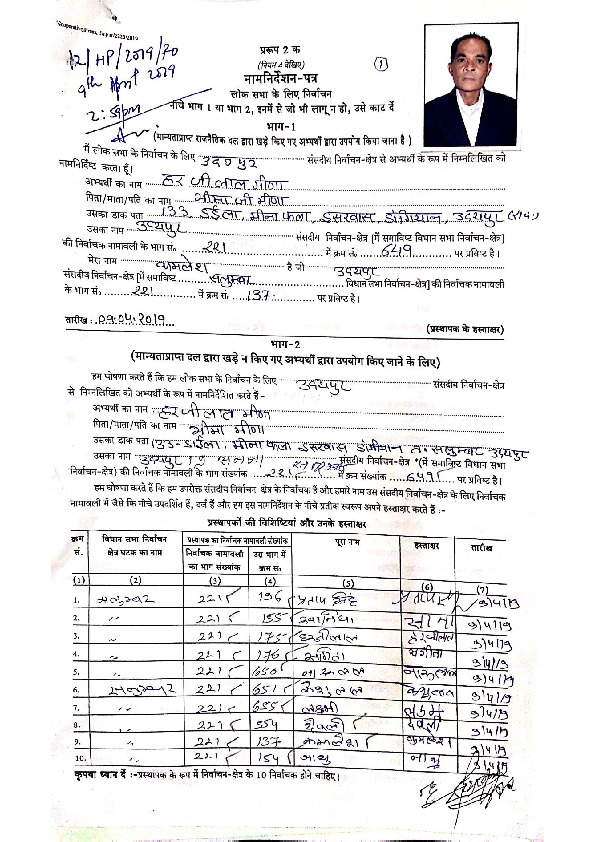 12/HP/2019/20
9th April 2019
2:59pm
प्ररूप 2 क
(नियम 4 देखिए)
1
नामनिर्देशन-पत्र
लोक सभा के लिए निर्वाचन
नीचे भाग 1 या भाग 2, इनमें से जो भी लागू न हो, उसे काट दें
भाग-1
(मान्यताप्राप्त राजनैतिक दल द्वारा खड़े किए गए अभ्यर्थी द्वारा उपयोग किया जाना है )
मैं लोक सभा के निर्वाचन के लिए उदयपुर संसदीय निर्वाचन-क्षेत्र से अभ्यर्थी के रूप में निम्नलिखित को
नामनिर्दिष्ट करता हूँ।
अभ्यर्थी का नाम हरजीलाल मीणा
पिता/माता/पति का नाम भीमाजी मीणा
उसका डाक पता 133 डईला, मीना फला, इसरवास, उदयपुर
उसका नाम उदयपुर संसदीय निर्वाचन-क्षेत्र [में समाविष्ट विधान सभा निर्वाचन-क्षेत्र]
की निर्वाचक नामावली के भाग सं. 221 में क्रम सं. 649 पर प्रविष्ट है।
मेरा नाम कमलेश है जो उदयपुर
संसदीय निर्वाचन-क्षेत्र [में समाविष्ट सलुम्बर विधान सभा निर्वाचन-क्षेत्र] की निर्वाचक नामावली
के भाग सं. 221 में क्रम सं. 137 पर प्रविष्ट है।
तारीख : 09.04.2019
(प्रस्थापक के हस्ताक्षर)
भाग-2
(मान्यताप्राप्त दल द्वारा खड़े न किए गए अभ्यर्थी द्वारा उपयोग किए जाने के लिए)
हम घोषणा करते हैं कि हम लोक सभा के निर्वाचन के लिए उदयपुर संसदीय निर्वाचन-क्षेत्र
से निम्नलिखित को अभ्यर्थी के रूप में नामनिर्देशित करते हैं-
अभ्यर्थी का नाम हरजीलाल मीणा
पिता/माता/पति का नाम भीमा मीणा
उसका डाक पता 133-डाईला, मीना फला इसरवास त. सलुम्बर उदयपुर
उसका नाम उदयपुर संसदीय निर्वाचन-क्षेत्र *(में समाविष्ट विधान सभा
निर्वाचन-क्षेत्र) की निर्वाचक नामावली के भाग संख्यांक 221 में क्रम संख्यांक 649 पर प्रविष्ट है।
हम घोषणा करते हैं कि हम उपरोक्त संसदीय निर्वाचन-क्षेत्र के निर्वाचक हैं और हमारे नाम उस संसदीय निर्वाचन-क्षेत्र के लिए निर्वाचक
नामावली में जैसे कि नीचे उपदर्शित हैं, दर्ज हैं और हम इस नामनिर्देशन के नीचे प्रतीक स्वरूप अपने हस्ताक्षर करते हैं :-
प्रस्थापकों की विशिष्टियां और उनके हस्ताक्षर
क्रम सं. विधान सभा निर्वाचन क्षेत्र घटक का नाम प्रस्थापक का निर्वाचक नामावली संख्यांक पूरा नाम हस्ताक्षर तारीख
निर्वाचक नामावली का भाग संख्यांक उस भाग में क्रम सं०
(1) (2) (3) (4) (5) (6) (7)
1. सलुम्बर 221 196 प्रताप सिंह 9/4/19
2. " 221 155 9/4/19
3. " 221 175 9/4/19
4. " 221 176 संगीता 9/4/19
5. " 221 650 9/4/19
6. सलुम्बर 221 651 9/4/19
7. " 221 655 लक्ष्मी 9/4/19
8. " 221 554 देवली देवली 9/4/19
9. " 221 137 कमलेश कमलेश 9/4/19
10. " 221 154 नाथु नाथु 9/4/19
कृपया ध्यान दें :-प्रस्थापक के रूप में निर्वाचन-क्षेत्र के 10 निर्वाचक होने चाहिए।